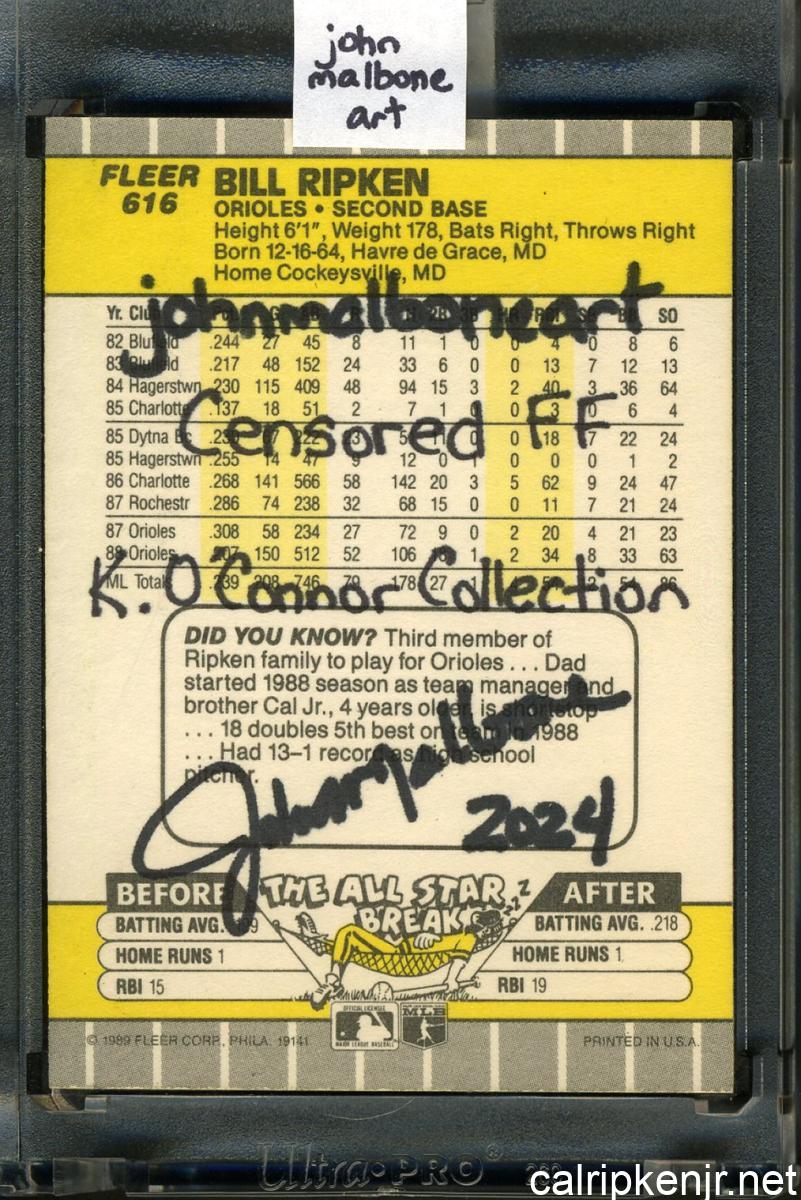 john
malbone
art
FLEER
616
BILL RIPKEN
ORIOLES • SECOND BASE
Height 6'1", Weight 178, Bats Right, Throws Right
Born 12-16-64, Havre de Grace, MD
Home Cockeysville, MD
johnmalboneart
Yr. Club SO
82 Blufield .244 27 45 8 11 1 0 0 4 0 8 6
83 Blufield .217 48 152 24 33 6 0 0 13 7 12 13
84 Hagerstwn .230 115 409 48 94 15 3 2 40 3 36 64
85 Charlotte .137 18 51 2 7 1 0 0 3 0 6 4
Censored FF
85 Dytna 18 7 22 24
85 Hagerstwn .255 14 47 9 12 0 1 0 0 0 1 2
86 Charlotte .268 141 566 58 142 20 3 5 62 9 24 47
87 Rochestr .286 74 238 32 68 15 0 0 11 7 21 24
87 Orioles .308 58 234 27 72 9 0 2 20 4 21 23
88 Orioles 150 512 52 106 1 2 34 8 33 63
ML Total 746 178 27 86
K. O'Connor Collection
DID YOU KNOW? Third member of
Ripken family to play for Orioles . . . Dad
started 1988 season as team manager and
brother Cal Jr., 4 years older, is shortstop
. . . 18 doubles 5th best on team in 1988
. . . Had 13–1 record as high school
pitcher.
John Malbone
2024
BEFORE
THE ALL STAR
BREAK
zzz
AFTER
BATTING AVG.
BATTING AVG. .218
HOME RUNS 1
HOME RUNS 1
RBI 15
RBI 19
OFFICIAL LICENSEE
MAJOR LEAGUE BASEBALL
MLB
© 1989 FLEER CORP., PHILA. 19141
PRINTED IN U.S.A.
Ultra•PRO®
calripkenjr.net